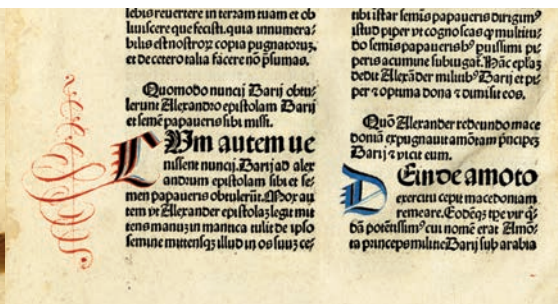 lebis reuertere in terram tuam et ob
liuiscere que fecisti. quia innumera⸗
bilis est nostroꝝ copia pugnatoruꝫ.
et de cetero talia facere nō p̄sumas.
Quomodo nuncij Darij obtu⸗
lerunt Alexandro epistolam Darij
et semē papaueris sibi misit.
CVm autem ue
nissent nuncij. Darij ad alex
andrum epistolam sibi et se⸗
men papaueris obtulerūt. Mox au
tem vt Alexander epistolaꝫ legit mit
tens manuꝫ in mantica tulit de ipso
semine mittensqꝫ illud in os suuꝫ ce⸗
tibi istar semīs papaueris dirigimꝰ
istud piper vt cognoscas ꝙ multitu⸗
do semīs papaueris hꝰ puissimi pi⸗
peris acumine subiugat. Hāc eplāꝫ
dedit Alexāder militibꝰ Darij et pi⸗
per ⁊ optima dona ⁊ dimisit eos.
Quō Alexander redeundo mace
doniā expugnauit amōtam pncipeꝫ
Darij ⁊ vicit eum.
DEinde amoto
exercitu cepit macedoniam
remeare. Eodēqꝫ tpe vir q̇⸗
dā potētissimꝰ cui nomē erat Amō⸗
ta princeps militie Darij sub arabia